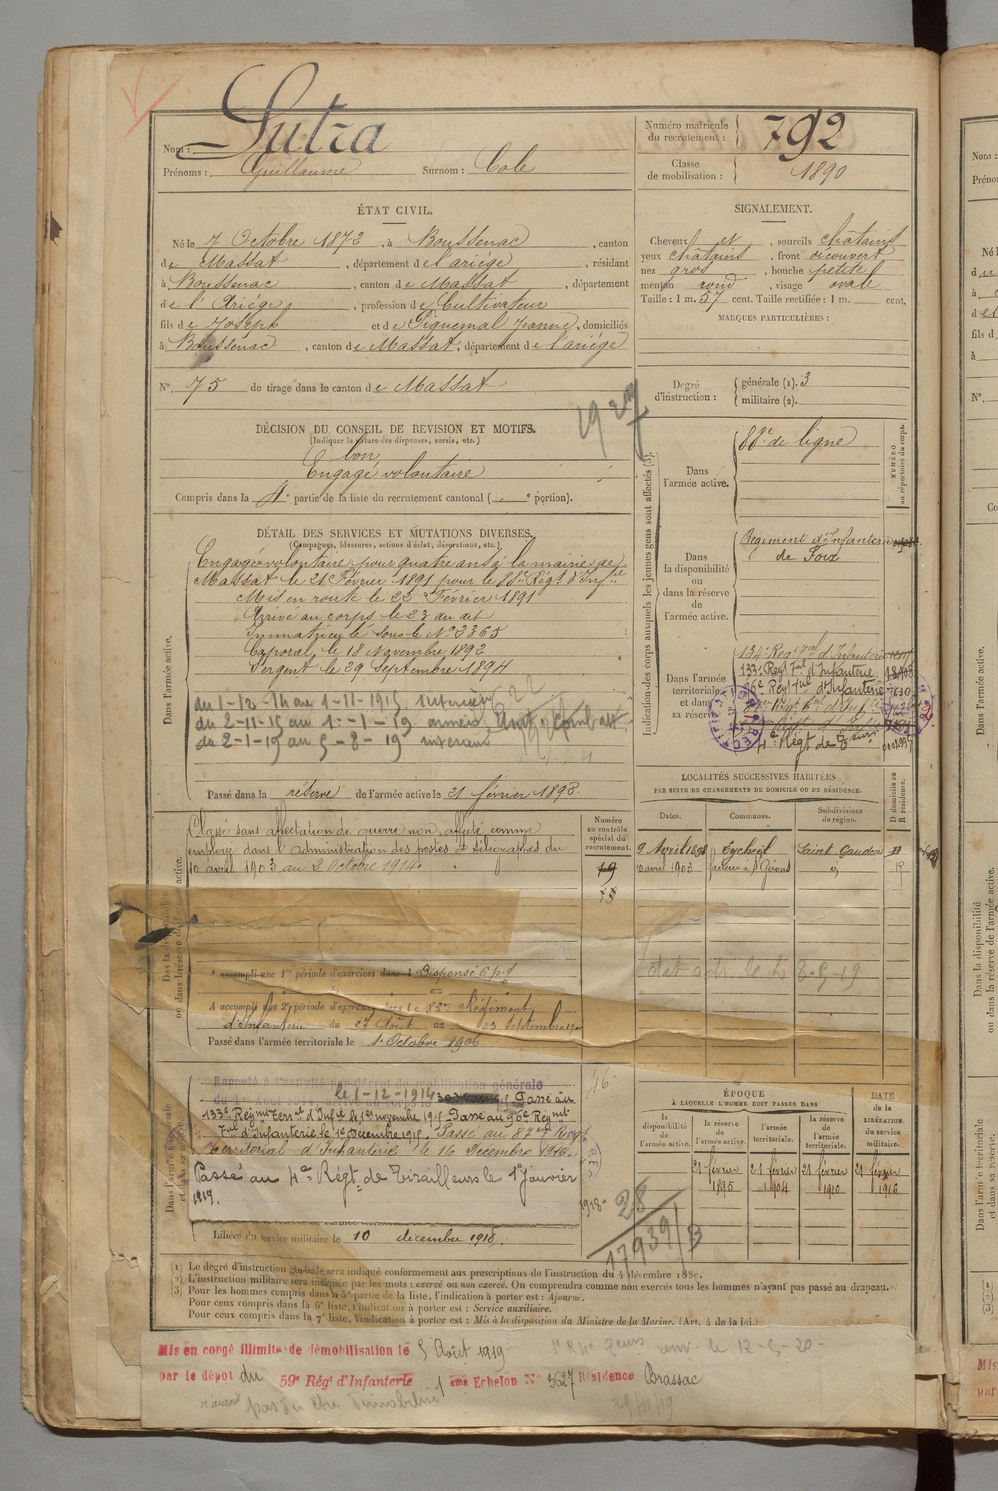 Nom : Sutra
Prénoms : Guillaume Surnom : Cole
Numéro matricule du recrutement : 792
Classe de mobilisation : 1890
ÉTAT CIVIL.
Né le 7 Octobre 1872, à Boussenac, canton
de Massat, département de l'ariège, résidant
à Boussenac, canton de Massat, département
de l'Ariège, profession de Cultivateur
fils de Joseph et de Piquemal Jeanne, domiciliés
à Boussenac, canton de Massat, département de l'ariège
N° 75 de tirage dans le canton de Massat
SIGNALEMENT.
Cheveux et , sourcils châtains
yeux châtains, front découvert
nez gros, bouche petite
menton rond, visage ovale
Taille : 1 m. 57 cent. Taille rectifiée : 1 m. cent.
MARQUES PARTICULIÈRES :
Degré d'instruction : générale (1). 3
militaire (2).
DÉCISION DU CONSEIL DE REVISION ET MOTIFS.
(Indiquer la nature des dispenses, sursis, etc.)
1927
bon
Engagé volontaire
Compris dans la 4e partie de la liste du recrutement cantonal ( e portion).
DÉTAIL DES SERVICES ET MUTATIONS DIVERSES.
(Campagnes, blessures, actions d'éclat, décorations, etc.)
Dans l'armée active.
Engagé volontaire pour quatre ans à la mairie de
Massat le 21 Février 1891 pour le 88e Régt d'Inf.ie
Mis en route le 22 Février 1891
Arrivé au corps le 23 au dit
Immatriculé sous le N° 3365
Caporal le 18 Novembre 1892
Sergent le 29 Septembre 1894
du 1-12-14 au 1-11-1915 Intérieur
du 2-11-15 au 1-1-19 armées
du 2-1-19 au 5-8-19 intérieur
Passé dans la réserve de l'armée active le 21 février 1895
Indication des corps auxquels les jeunes gens sont affectés (3).
NUMÉRO au répertoire du corps.
Dans l'armée active.
88e de ligne
Dans la disponibilité ou dans la réserve de l'armée active.
Régiment d'Infanterie
de Foix
Dans l'armée territoriale et dans sa réserve.
134e Regt Tal d'Infanterie
133e Regt Tal d'Infanterie
96e Rgt Tnal d'Infanterie 7630
4e Régt de Tirrs
LOCALITÉS SUCCESSIVES HABITÉES
PAR SUITE DE CHANGEMENTS DE DOMICILE OU DE RÉSIDENCE.
Dates. Communes. Subdivisions de région. D domicile ou R résidence.
9 Avril 1898 Eycheil Saint Gaudens D
10 avril 1903 facteur à St Girons id R
Numéro au contrôle spécial du recrutement.
Classé dans affectation de guerre non affecté comme
employé dans l'administration des postes et télégraphes du
10 avril 1903 au 2 Octobre 1914.
A accompli une 1re période d'exercices dans l Dispensé
A accompli une 2e période d'exercices dans le 83e Régiment
d'Infanterie du 27 Août au 23 Septembre
Passé dans l'armée territoriale le 1er Octobre 1906
Rappelé à l'activité par décret de mobilisation générale
le 1-12-1914 Passé au
133e Regmt Terr.al d'Inf.ie le 1er novembre 1915 Passé au 96e Regmt
Tnal d'Infanterie le 1er Decembre 1915. Passé au 87me Régt
Territorial d'Infanterie le 16 Decembre 1916.
Passé au 4me Régt de Tirailleurs le 1er Janvier
1919.
Libéré du service militaire le 10 décembre 1918.
28
17939/B
ÉPOQUE
A LAQUELLE L'HOMME DOIT PASSER DANS
la disponibilité de l'armée active. la réserve de l'armée active. l'armée territoriale. la réserve de l'armée territoriale.
DATE de la LIBÉRATION du service militaire.
21 février 1895 21 février 1904 21 février 1910 21 février 1916
(1) Le degré d'instruction générale sera indiqué conformément aux prescriptions de l'instruction du 4 décembre 1889.
(2) L'instruction militaire sera indiquée par les mots : exercé ou non exercé. On comprendra comme non exercés tous les hommes n'ayant pas passé au drapeau.
(3) Pour les hommes compris dans la 5e partie de la liste, l'indication à porter est : Ajourné.
Pour ceux compris dans la 6e liste, l'indication à porter est : Service auxiliaire.
Pour ceux compris dans la 7e liste, l'indication à porter est : Mis à la disposition du Ministre de la Marine. (Art. 4 de la loi.)
Mis en congé illimité de démobilisation le 5 Août 1919
par le dépôt du 59e Régt d'Infanterie 1 ème Echelon N° 3627 Résidence Brassac